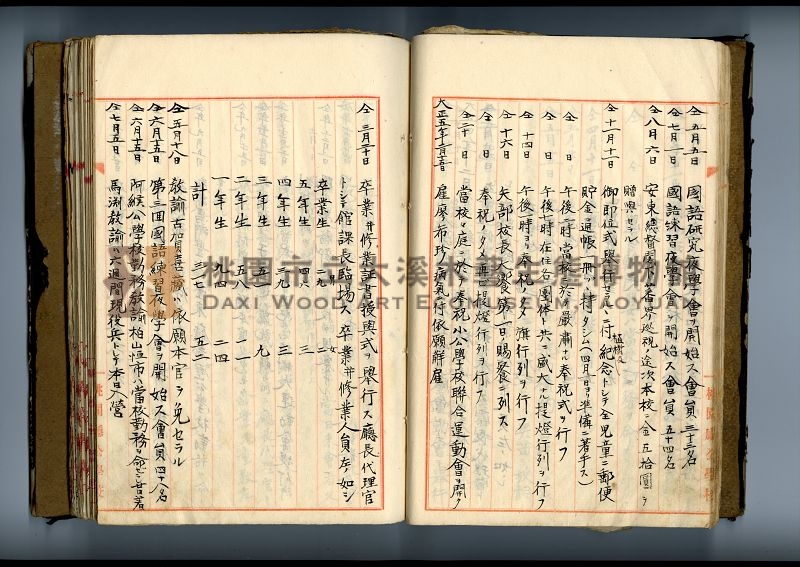 仝 五月五日 國語研究夜學會ヲ開始ス會員三十三名
仝 七月一日 國語練習夜學會ヲ開始ス會員五十四名
仝 八月六日 安東總督閣下蕃界巡視ノ途次本校ニ金五拾圓ヲ
贈與セラル
仝 十一月十一日 御即位式舉行セラルヽニ付紀念トシテ全兒童ニ郵便
貯金通帳一冊ヅヽ持タシム(四月一日ヨリ準備ニ著手ス)
仝 日 午後一時當校ニ於テ嚴肅ナル奉祝式ヲ行フ
仝 日 午後七時在住各團体ト共ニ盛大ナル提燈行列ヲ行フ
仝 十四日 午後一時ヨリ奉祝ノタメ旗行列ヲ行フ
仝 十六日 矢部校長大饗第二日ノ賜餐ニ列ス
仝 日 奉祝ノタメ再ビ提燈行列ヲ行フ
仝 二十日 當校々庭ニ於テ奉祝小公學校聯合運動會ヲ開ク
大正五年二月十五日 雇廖希珍病氣ニ付依願解雇
仝 三月三十日 卒業并修業証書授與式ヲ舉行ス廳長代理官
トシテ館課長臨場ス 卒業并修業人員左ノ如シ
男 女
卒業生 二九 二
五年生 四六 三
四年生 三九 三
三年生 五一 九
二年生 五八 一一
一年生 九四 二四
計 三一七 五二
仝 五月十八日 教諭古賀喜三藏ハ依願本官ヲ免セラル
仝 六月十五日 第三回國語練習夜學會ヲ開始ス會員四十八名
仝 六月十五日 阿緱公學校勤務教諭柏山恒市ハ當校勤務ヲ命セラレ著
仝 七月五日 馬渕教諭ハ六週間現役兵トシテ本日入營
桃園市立大溪木藝生態博物館
DAXI WOOD ART ECOMUSEUM, TAOYUAN